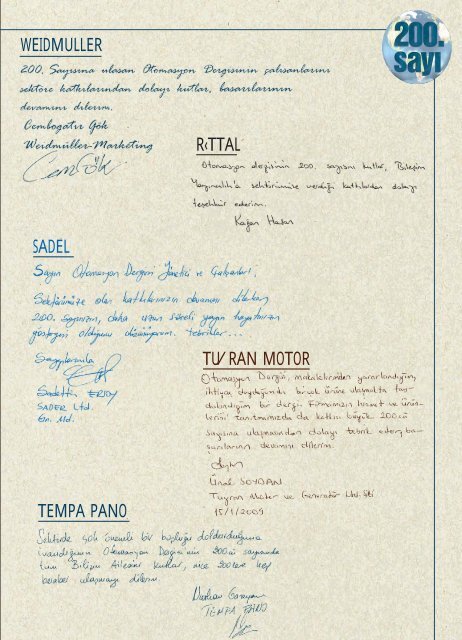 200.
sayı
WEIDMULLER
200. Sayısına ulaşan Otomasyon Dergisinin çalışanlarını
sektöre katkılarından dolayı kutlar, başarılarının
devamını dilerim.
Cembogatır Gök
Weidmüller-Marketing
Cem GÖK
RıTTAL
Otomasyon dergisinin 200. sayısını kutlar, Bileşim
Yayıncılık'a sektörümüze verdiği katkılardan dolayı
teşekkür ederim.
Kağan Hasan
SADEL
Sayın Otomasyon Dergisi Yönetici ve Çalışanları,
Sektörümüze olan katkılarınızın devamını dilerken
200. sayınızın, daha uzun süreli yayın hayatınızın
göstergesi olduğunu düşünüyorum. tebrikler...
Saygılarımla
Sadettin ERSOY
SADER Ltd.
Gn. Md.
TU/ RAN MOTOR
Otomasyon Dergisi, makalelerinden yararlandığım,
ihtiyaç duyduğumda birçok ürüne ulaşmakta fay-
dalandığım bir dergi. Firmamızın hizmet ve ürün-
lerini tanıtmamızda da katkısı büyük. 200.cü
sayısına ulaşmasından dolayı tebrik eder, ba-
şarılarının devamını dilerim.
Ünal SOYDAN
Tuyran Motor ve Generatör
15/1/2009
TEMPA PANO
Sektörde çok önemli bir boşluğu doldurduğuna
inandığımız Otomasyon Dergisi'nin 200.cü sayısında
tüm Bilişim Ailesini kutlar, nice 200lere hep
beraber ulaşmayı dilerim
TEMPA PANO